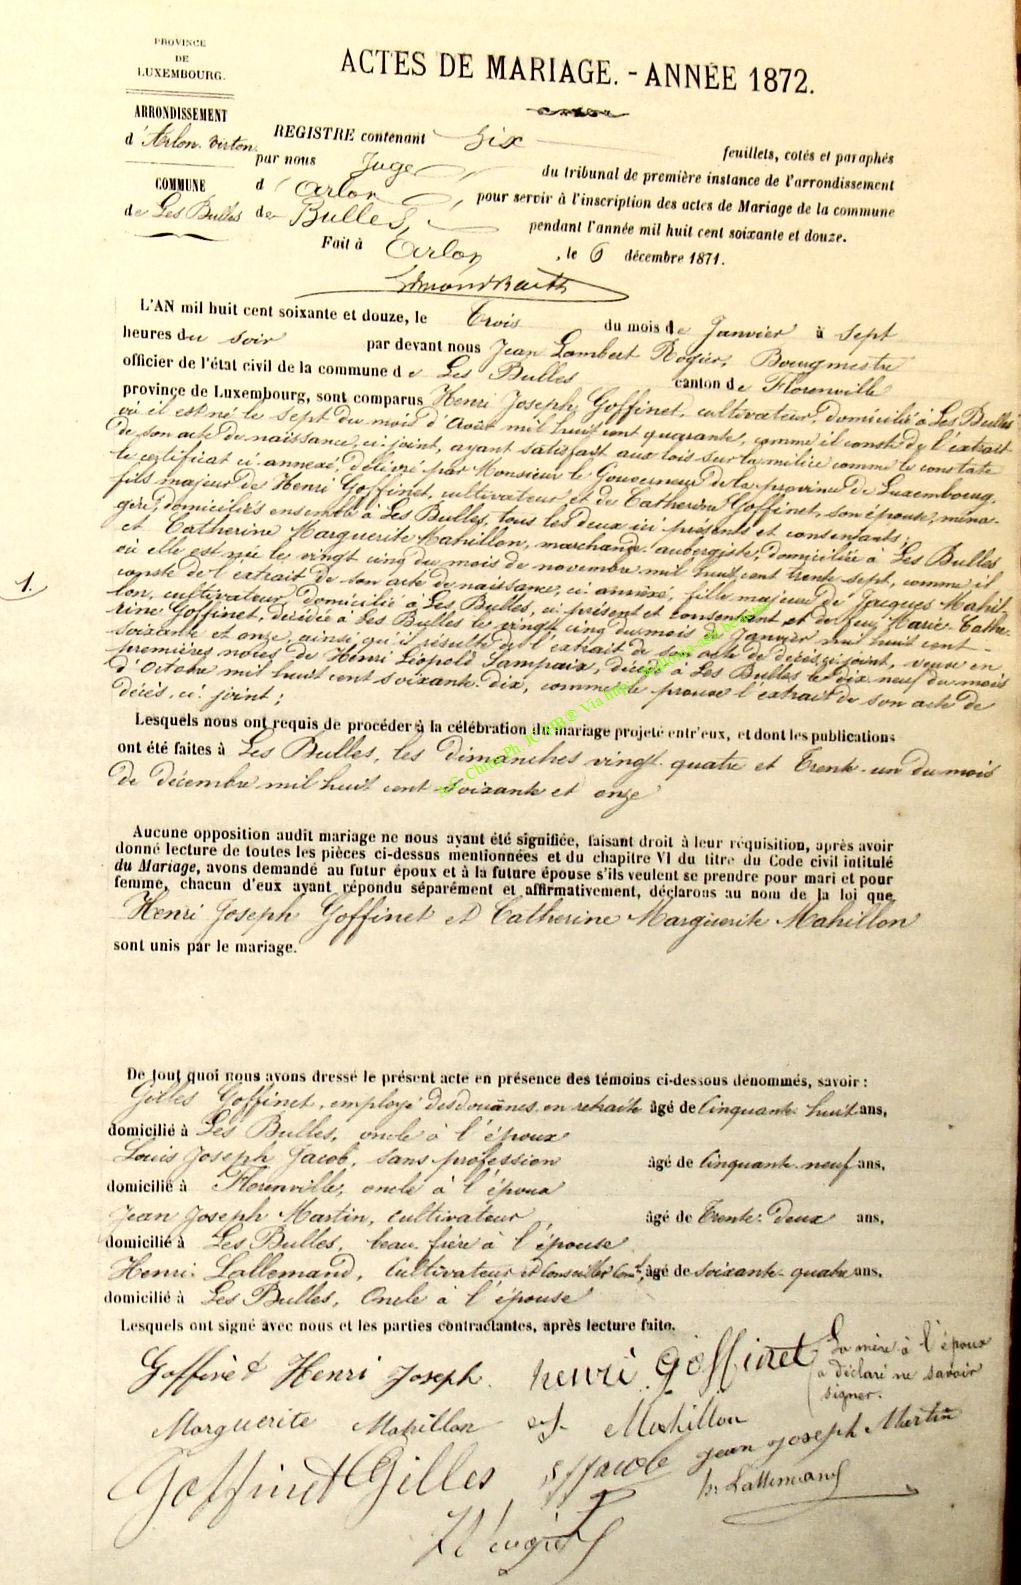 PROVINCE
DE
LUXEMBOURG.
ARRONDISSEMENT
d'Arlon. Virton.
COMMUNE
de Les Bulles
ACTES DE MARIAGE. - ANNÉE 1872.
REGISTRE contenant Six feuillets, cotés et paraphés
par nous Juge du tribunal de première instance de l'arrondissement
d'Arlon pour servir à l'inscription des actes de Mariage de la commune
de Bulles, pendant l'année mil huit cent soixante et douze.
Fait à Arlon, le 6 décembre 1871.
1.
L'AN mil huit cent soixante et douze, le Trois du mois de Janvier à sept
heures du soir par devant nous Jean Lambert Rogier, Bourgmestre
officier de l'état civil de la commune de Les Bulles canton de Florenville
province de Luxembourg, sont comparus Henri Joseph Goffinet, cultivateur, domicilié à Les Bulles
où il est né le sept du mois d'Août mil huit cent quarante, comme il conste de l'extrait
de son acte de naissance, ci-joint, ayant satisfait aux lois sur la milice comme le constate
le certificat ci-annexé, délivré par Monsieur le Gouverneur de la province de Luxembourg,
fils majeur de Henri Goffinet, cultivateur et de Catherine Goffinet, son épouse, ména-
gère, domiciliés ensemble à Les Bulles, tous les deux ici présents et consentants;
et Catherine Marguerite Mahillon, marchande-aubergiste, domiciliée à Les Bulles
où elle est née le vingt cinq du mois de novembre mil huit cent trente sept, comme il
conste de l'extrait de son acte de naissance, ci-annexé, fille majeure de Jacques Mahil-
lon, cultivateur domicilié à Les Bulles, ci-présent et consentant et de feu, Marie-Cathe-
rine Goffinet, décédée à Les Bulles le vingt cinq du mois de Janvier mil huit cent
soixante et onze, ainsi qu'il résulte de l'extrait de son acte de décès ci-joint, veuve en
premières noces de Henri Léopold Jampaix, décédé à Les Bulles le dix neuf du mois
d'Octobre mil huit cent soixante-dix, comme le prouve l'extrait de son acte de
décès, ci-joint;
Lesquels nous ont requis de procéder à la célébration du mariage projeté entr'eux, et dont les publications
ont été faites à Les Bulles, les dimanches vingt-quatre et Trente-un du mois
de décembre mil huit cent soixante et onze
Aucune opposition audit mariage ne nous ayant été signifiée, faisant droit à leur réquisition, après avoir
donné lecture de toutes les pièces ci-dessus mentionnées et du chapitre VI du titre du Code civil intitulé
du Mariage, avons demandé au futur époux et à la future épouse s'ils veulent se prendre pour mari et pour
femme, chacun d'eux ayant répondu séparément et affirmativement, déclarons au nom de la loi que
Henri Joseph Goffinet et Catherine Marguerite Mahillon
sont unis par le mariage.
De tout quoi nous avons dressé le présent acte en présence des témoins ci-dessous dénommés, savoir:
Gilles Goffinet, employé des douânes en retraite âgé de Cinquante-huit ans,
domicilié à Les Bulles, oncle à l'époux
Louis Joseph Jacob, sans profession âgé de Cinquante-neuf ans,
domicilié à Florenville, oncle à l'époux
Jean Joseph Martin, cultivateur âgé de Trente-deux ans,
domicilié à Les Bulles, beau-frère à l'épouse
Henri Lallemand, Cultivateur et Conseiller Coml. âgé de soixante-quatre ans,
domicilié à Les Bulles, Oncle à l'épouse
Lesquels ont signé avec nous et les parties contractantes, après lecture faite.
Goffinet Henri Joseph. henri goffinet La mère à l'époux
a déclaré ne savoir
signer.
Marguerite Mahillon Mahillon
Goffinet Gilles Jacob jean joseph Martin
h. Lallemand